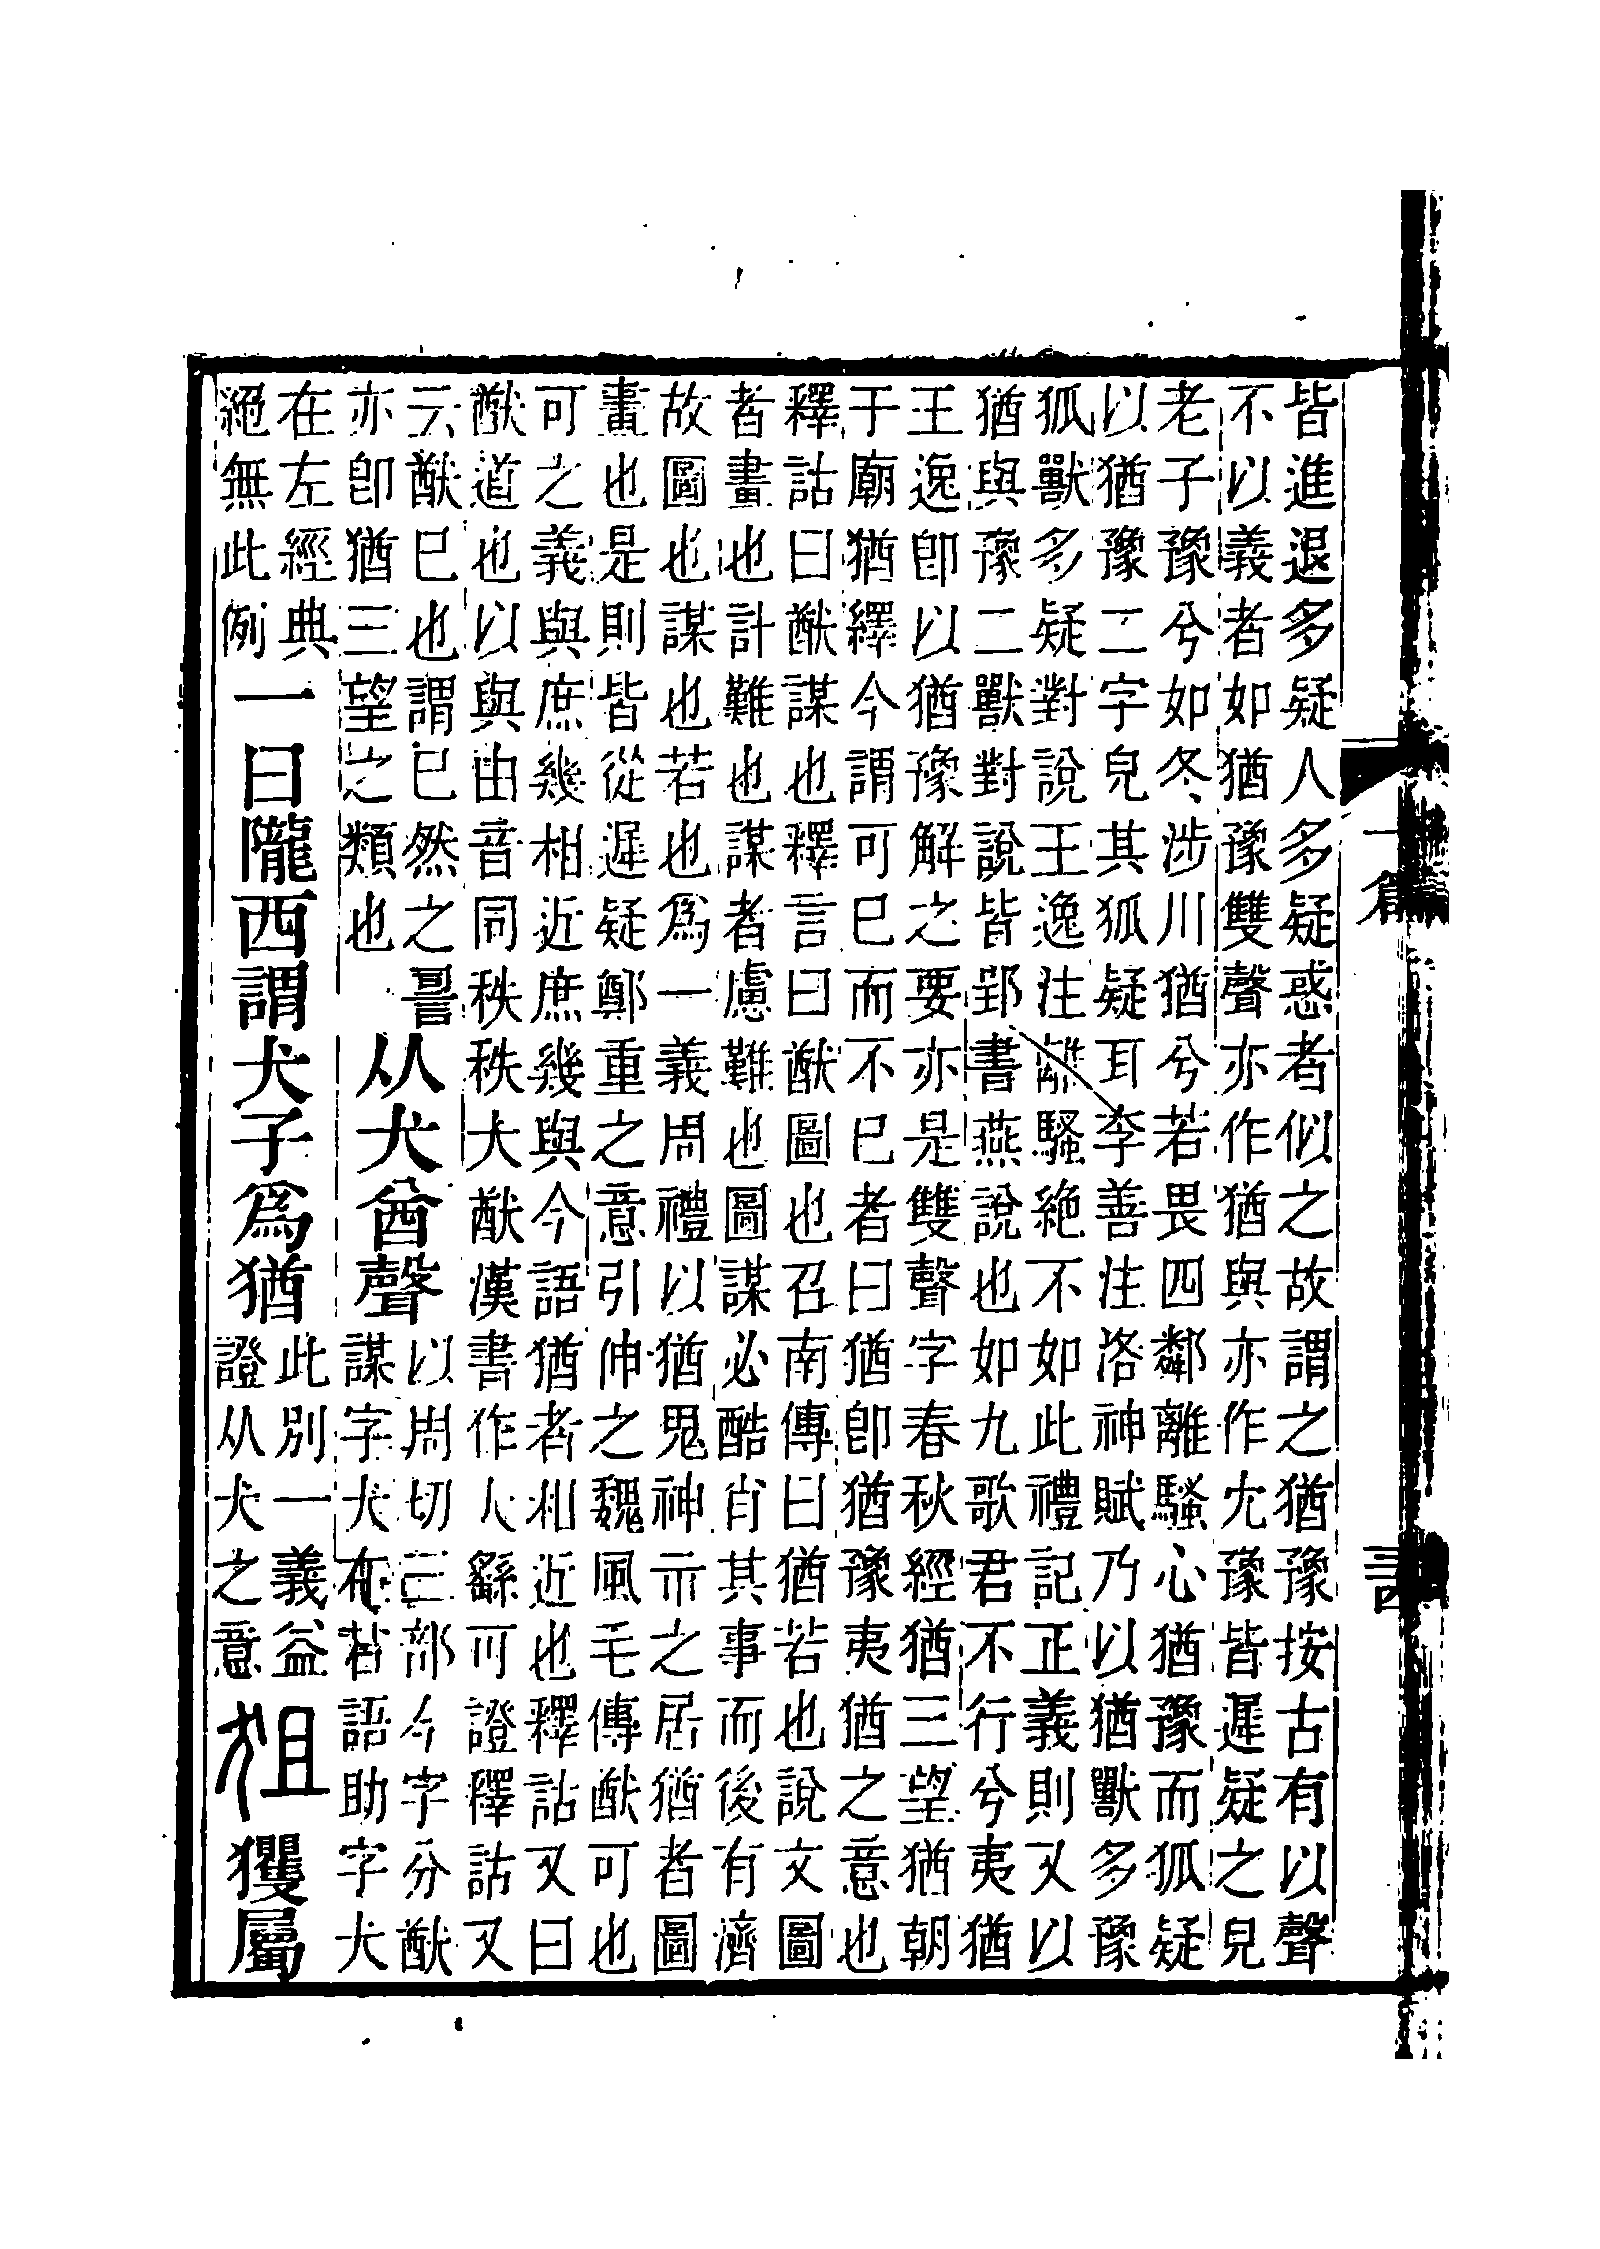 皆進退多疑人多疑惑者似之故謂之猶豫按古有以聲
不以義者如猶豫雙聲亦作猶與亦作冘豫皆遲疑之皃
老子豫兮如冬涉川猶兮若畏四鄰離騷心猶豫而狐疑
以猶豫二字皃其狐疑耳李善注洛神賦乃以猶獸多豫
狐獸多疑對說王逸注離騷絶不如此禮記正義則又以
猶與豫二獸對說皆郢書燕說也如九歌君不行兮夷猶
王逸卽以猶豫解之要亦是雙聲字春秋經猶三望猶朝
于廟猶繹今謂可已而不已者曰猶卽猶豫夷猶之意也
釋詁曰猷謀也釋言曰猷圖也召南傳曰猶若也說文圖
者畫也計難也謀者慮難也圖謀必酷肖其事而後有濟
故圖也謀也若也爲一義周禮以猶鬼神示之居猶者圖
畫也是則皆從遲疑鄭重之意引伸之魏風毛傳猷可也
可之義與庶幾相近庶幾與今語猶者相近也釋詁又曰
猷道也以與由音同秩秩大猷漢書作大繇可證釋詁又
云猷已也謂已然之䛐
亦卽猶三望之類也
从犬酋聲
以周切三部今字分猷
謀字犬在右語助字犬
在左經典
絶無此例
一曰隴西謂犬子爲猶
此別一義益
證从犬之意
狙玃屬